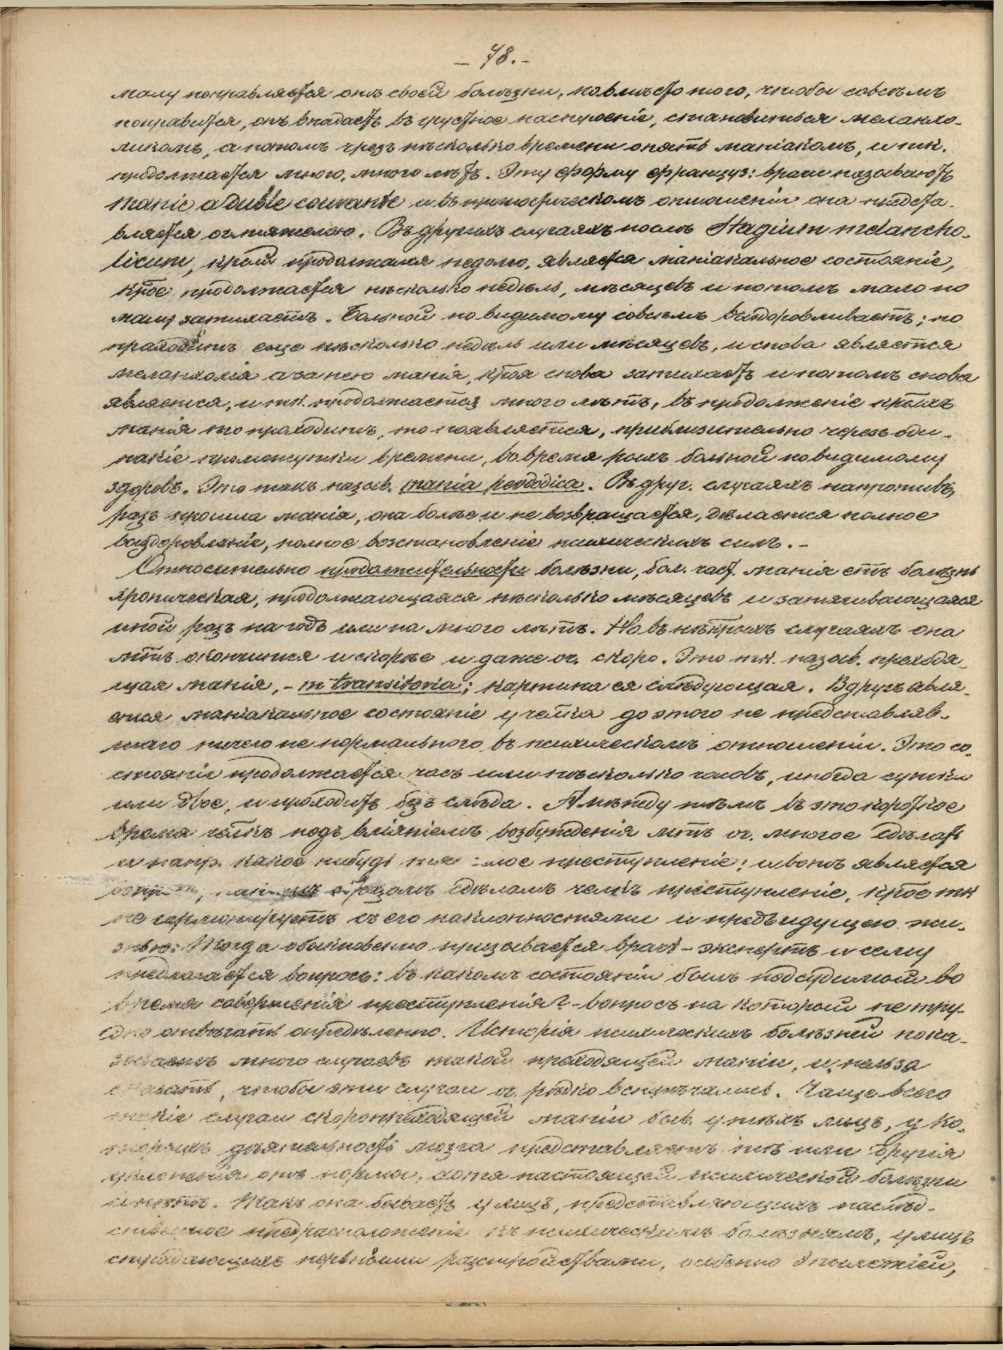 – 78. –
малу поправляется отъ своей болѣзни, но вмѣсто того, чтобы совсѣмъ
поправиться, онъ впадаетъ въ грустное настроеніе, становится меланхо-
ликомъ, а потомъ чрезъ нѣсколько времени опять маніакомъ, и тк.
продолжается много, много лѣтъ. Эту форму француз: врачи называютъ
manie a duble courante и въ прогностическомъ отношеніи она предста-
вляется оч. тяжелою. Въ другихъ случаяхъ послѣ Stagium melancho-
licum, крый продолжался недолго, является маніакальное состояніе,
крое продолжается нѣсколько недѣль, мѣсяцевъ и потомъ мало по
малу затихаетъ. Больной по видимому совсѣмъ выздоровливаетъ; но
проходитъ еще нѣсколько недѣль или мѣсяцевъ, и снова является
меланхолія а за нею манія, края снова затихаетъ и потомъ снова
является, и тк. продолжается много лѣтъ, въ продолженіе крыхъ
манія то проходитъ, то появляется, приблизительно черезъ оди-
накіе промежутки времени, во время рыхъ больной по видимому
здоровъ. Это такъ назыв. mania peodica. Въ друг. случаяхъ напротивъ,
разъ прошла манія, она болѣе и не возвращается, дѣлается полное
выздоровленіе, полное возстановленіе психическихъ силъ. –
Относительно продолжительности болѣзни, бол. част. манія есть болѣзнь
хроническая, продолжающаяся нѣсколько мѣсяцевъ и затягивающаяся
иной разъ на годъ или на много лѣтъ. Но въ нѣкрыхъ случаяхъ она
мтъ окончиться и скорѣе и даже оч. скоро. Это тк. назыв. преходя-
щая манія, – m transitoria; картина ея слѣдующая. Вдругъ явля-
ется маніакальное состояніе у челка до этого не представляв-
шаго ничего не нормальнаго въ психическомъ отношеніи. Это со-
стояніе продолжается часъ или нѣсколько часовъ, иногда сутки
или двое, и проходитъ безъ слѣда. А между тѣмъ въ это короткое
время челкъ подъ вліяніемъ возбужденія мтъ оч. многое сдѣлать
и напр. какое нибудь преступленіе; и вотъ является
образомъ сдѣлалъ челкъ преступленіе, крое тк
не гармонируетъ съ его наклонностями и предъидущею жи-
знью? Тогда обыкновенно призывается врачъ-экспертъ и ему
предлагается вопросъ: въ какомъ состояніи былъ подсудимый во
время совершенія преступленія? – вопросъ на который не тру-
дно отвѣчать опредѣленно. Исторія психическихъ болѣзней пока-
зываетъ много случаевъ такой преходящей маніи, и нельзя
сказать, чтобы эти случаи оч. рѣдко встрѣчались. Чаще всего
такіе случаи скоропреходящей маніи быв. у тѣхъ лицъ, у ко-
торыхъ дѣятельность мозга представляетъ тѣ или другія
уклоненія отъ нормы, хотя настоящей психической болѣзни
и нѣтъ. Такъ она бываетъ у лицъ, представляющихъ наслѣд-
ственное предрасположеніе къ психическимъ болѣзнямъ, у лицъ
страдающихъ нервными разстройствами, особенно эпилепсіей,